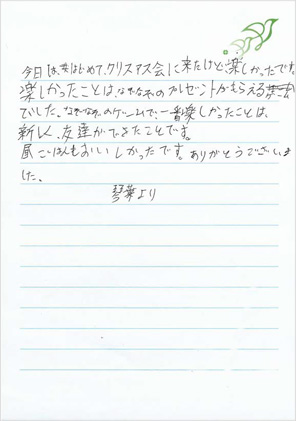 今日は、はじめて、クリスマス会に来たけど、楽しかったです。
楽しかったことは、なぞなぞのプレゼントがもらえる
でした。なぞなぞのゲームで、一番楽しかったことは、
新しく、友達ができたことです。
昼ごはんもおいしかったです。ありがとうございま
した。
琴葉より